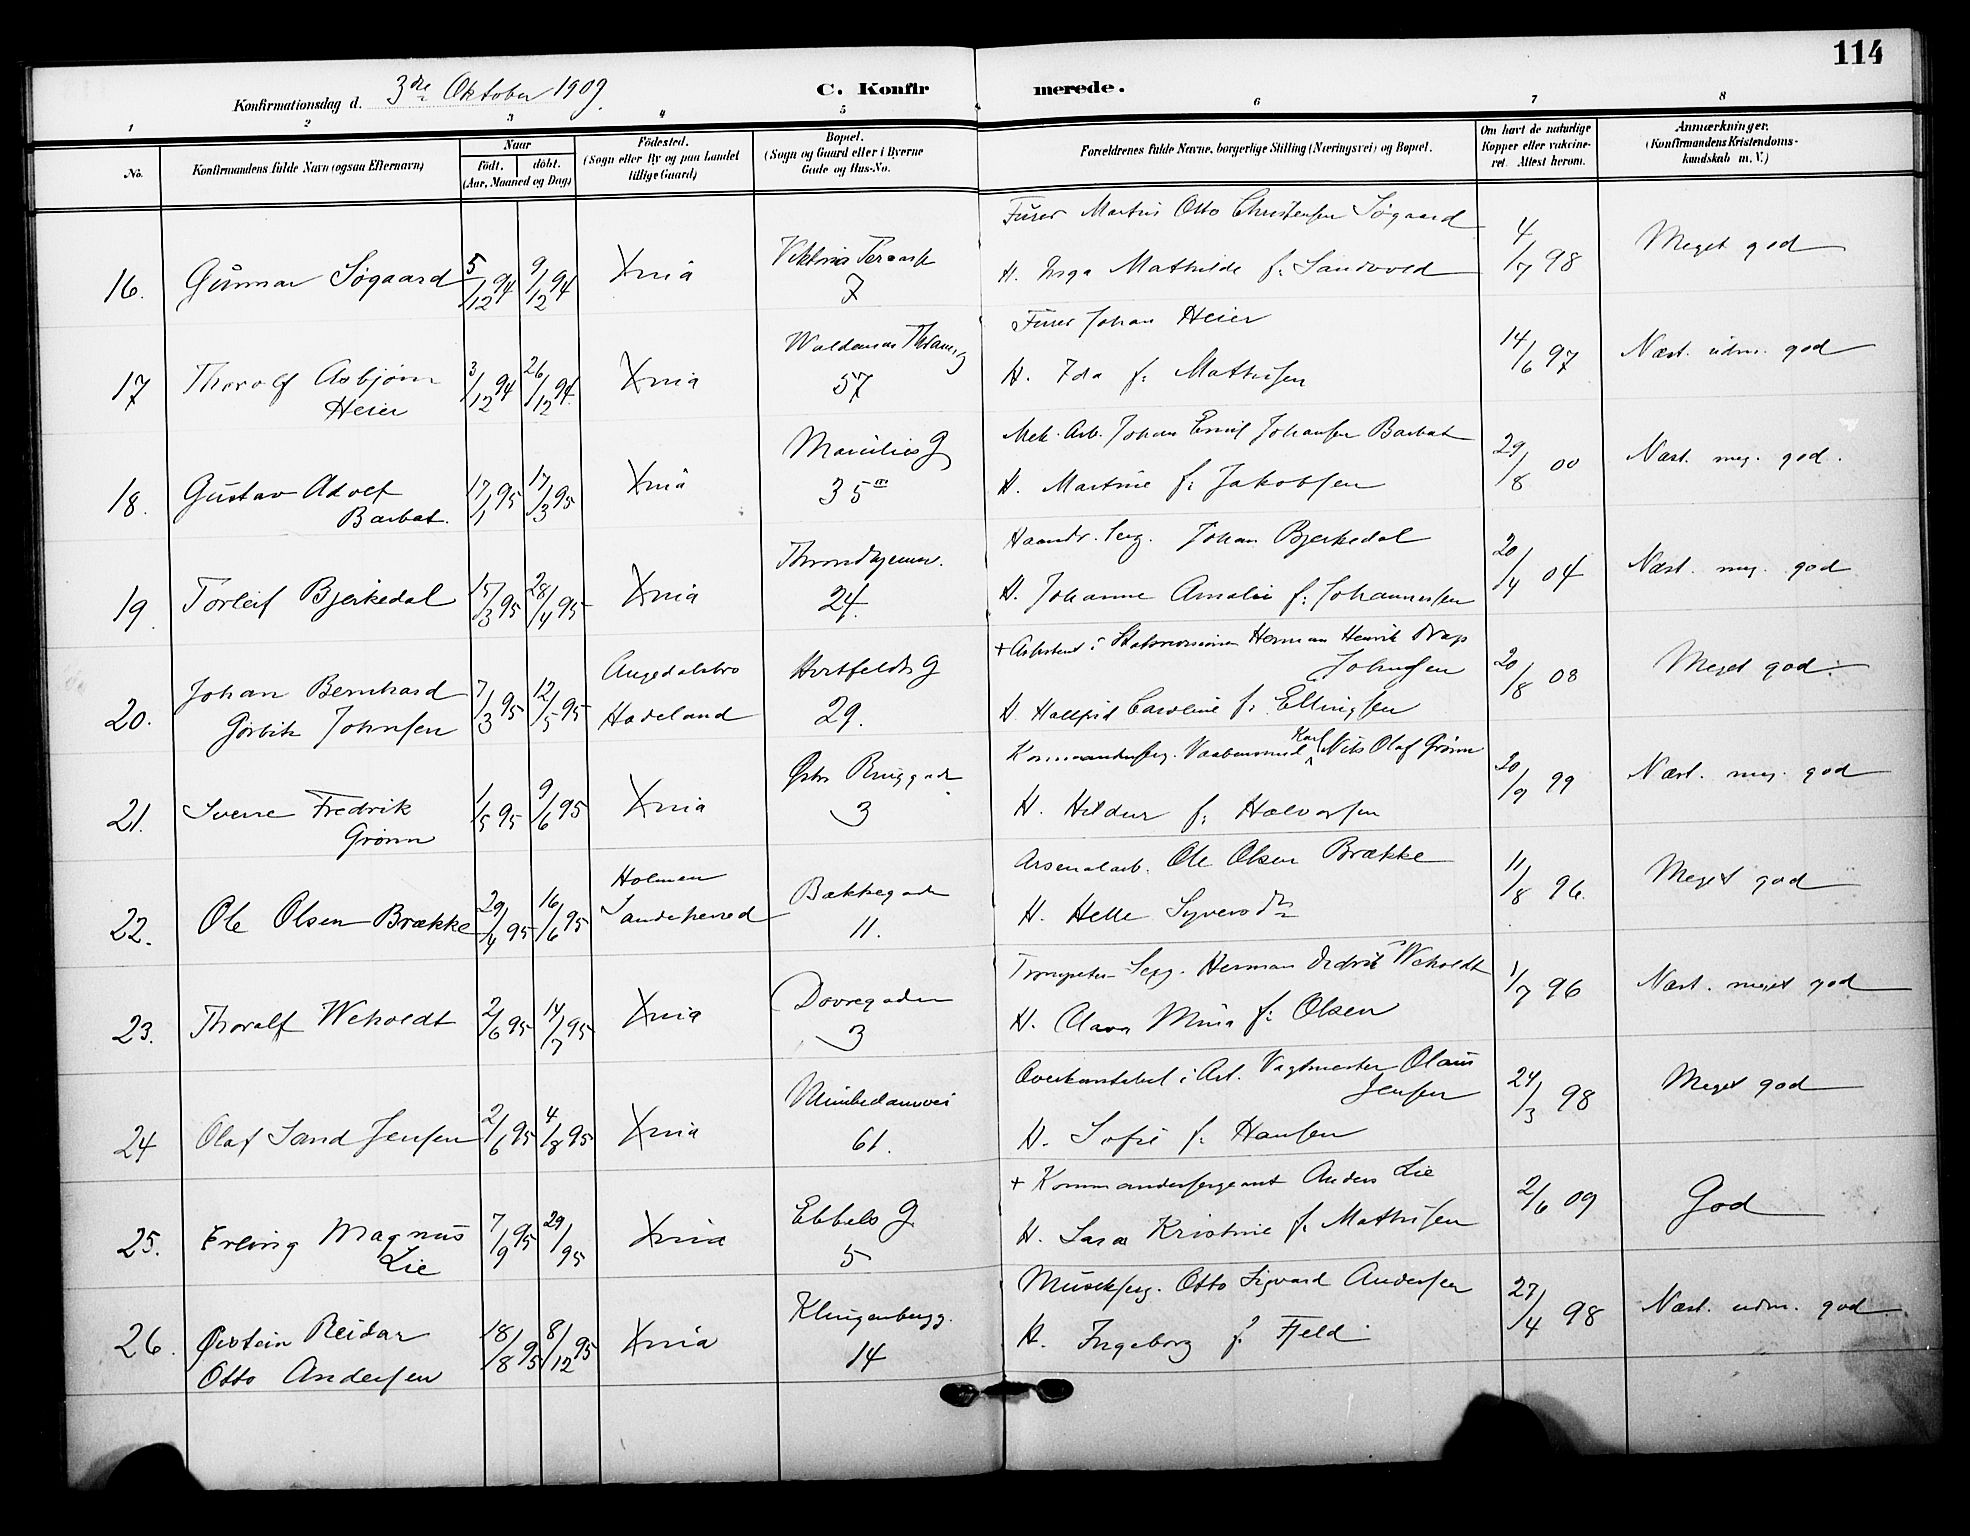 114
Konfirmationsdag d. 3die Oktober 1909. C. Konfirmerede.
1 2 3 4 5 6 7 8
No. Konfirmandens fulde Navn (ogsaa Efternavn)
Naar
født. døbt.
(Aar, Maaned og Dag)
Fødested.
(Sogn eller By og paa Landet
tillige Gaard)
Bopæl.
(Sogn og Gaard eller i Byerne
Gade og Hus-No.
Forældrenes fulde Navne, borgerlige Stilling (Næringsvei) og Bopæl.
Om havt de naturlige
Kopper eller vakcine-
ret. Attest herom.
Anmærkninger.
(Konfirmandens Kristendoms-
kundskab m. V.)
16. Gunnar Søgaard 5/12 94 9/12 94 Xnia Viktoria Terasse 7
Furer Martin Otto Christensen Søgaard
H. Inga Mathilde f. Sandvold
4/7 98 Meget god
17 Thorolf Asbjørn
Heier 3/12 94 26/12 94 Xnia Waldemar Thranes g 57
Furer Johan Heier
H. Ida f. Mathisen
14/6 97 Næst. udm. god
18. Gustav Adolf
Barbat. 17/1 95 17/3 95 Xnia Maridies G 35
Mek. Arb. Johan Emil Johansen Barbat
H. Martine f. Jakobsen
29/8 00 Næst. meg. god.
19. Torleif Bjerkedal 15/3 95 28/4 95 Xnia Throndhjemsv. 24.
Haandv. Serg. Johan Bjerkedal
H. Johanne Amalie f. Johannesen
20/4 04 Næst. meg. god
20. Johan Bernhard
Johnsen 7/3 95 12/5 95 Hadeland Hertfeldts G 29.
+ Assistent i Herman Henrik
Johnsen
H. Hallfrid Caroline f. Ellingsen
20/8 08 Meget god.
21. Sverre Fredrik
Grønn 1/5 95 9/6 95 Xnia Østre Bruggade 3
Kommandersg. Vaabensmed Karl Nils Olaf Grønn
H. Hildur f. Halvorsen
20/9 99 Næst. meg. god
22. Ole Olsen Brække 29/4 95 16/6 95 Holmen
Sandeherred Bakkegaden 11.
Arsenalarb. Ole Olsen Brække
H. Helle Syversdtr
11/8 96. Meget god
23. Thoralf Weholdt 2/6 95 14/7 95 Xnia Dovregaden 3
Trompeter Serg. Herman Fredrik Weholdt
H. Clara Mina f. Olsen
1/7 96 Næst. meget god
24 Olaf Sand Jensen 2/6 95 4/8 95 Xnia Munkedamsvei 61.
Overkonstabel i Art. Vagtmester Olaus
Jensen
H. Sofie f. Hansen
24/3 98 Meget god
25. Erling Magnus
Lie 7/9 95 29/ 95 Xnia Ebbels G. 5
+ Kommandersergeant Anders Lie
H. Sara Kristine f. Mathisen
2/6 09 God
26. Øistein Reidar
Otto Andersen 18/8 95 8/12 95 Xnia Klingenbergg. 14
Musikserg. Otto Sigvard Andersen
H. Ingeborg f. Fjeld
27/4 98 Næst. udm. god.